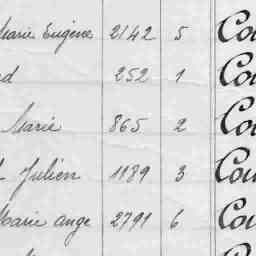 Marie Eugène 2142 5 Cou
252 1 Cou
Marie 865 2 Cou
Julien 1189 3 Cou
Marie ange 2791 6 Cou